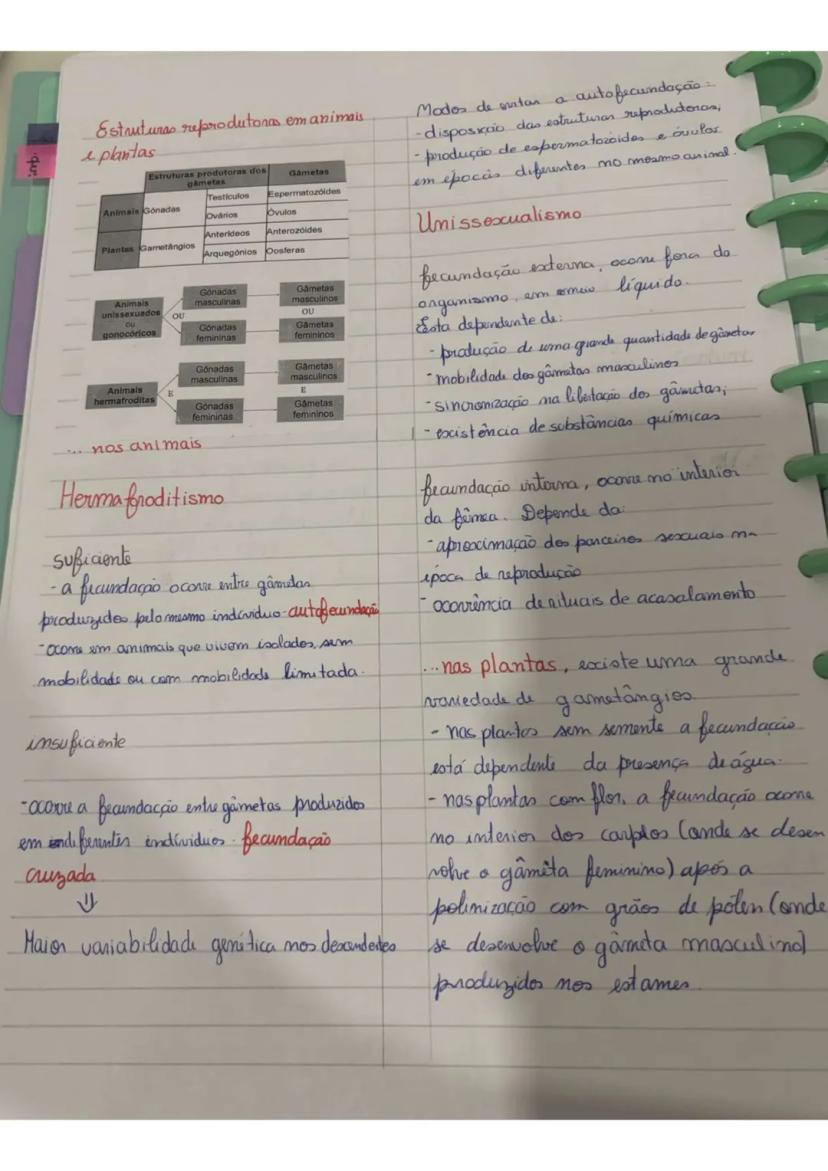 Estruturas reprodutoras em animais
e plantas
Estruturas produtoras dos gâmetas
Gâmetas
Animais
Gónadas
Testículos
Espermatozóides
Ovários
Óvulos
Plantas
Gametângios
Anterídeos
Anterozóides
Arquegónios
Oosferas
Animais unissexuados ou gonocóricos
OU
Gónadas masculinas
Gâmetas masculinos
OU
Gónadas femininas
Gâmetas femininos
Animais hermafroditas
E
Gónadas masculinas
Gâmetas masculinos
E
Gónadas femininas
Gâmetas femininos
... nos animais
Hermafroditismo
suficiente
- a fecundação ocorre entre gâmetas
produzidos pelo mesmo indivíduo - autofecundação
- ocorre em animais que vivem isolados, sem
mobilidade ou com mobilidade limitada.
insuficiente
- ocorre a fecundação entre gâmetas produzidos
em diferentes indivíduos - fecundação
cruzada
⇓
Maior variabilidade genética nos descendentes
Modos de evitar a autofecundação:
- disposição das estruturas reprodutoras;
- produção de espermatozoides e óvulos
em épocas diferentes no mesmo animal.
Unissexualismo
fecundação externa, ocorre fora do
organismo, em meio líquido.
Esta dependente de:
- produção de uma grande quantidade de gâmetas
- mobilidade dos gâmetas masculinos
- sincronização na libertação dos gâmetas;
- existência de substâncias químicas
fecundação interna, ocorre no interior
da fêmea. Depende da:
- aproximação dos parceiros sexuais na
época de reprodução
- ocorrência de rituais de acasalamento
... nas plantas, existe uma grande
variedade de gametângios
- nas plantas sem semente a fecundação
está dependente da presença de água.
- nas plantas com flor, a fecundação ocorre
no interior dos carpelos (onde se desen
volve o gâmeta feminino) após a
polinização com grãos de pólen (onde
se desenvolve o gâmeta masculino)
produzidos nos estames.